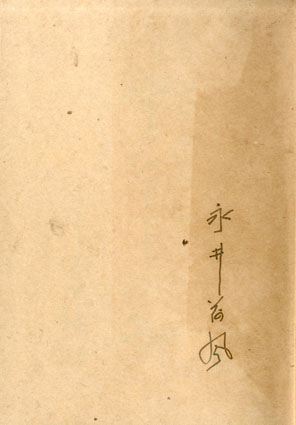 永井荷風